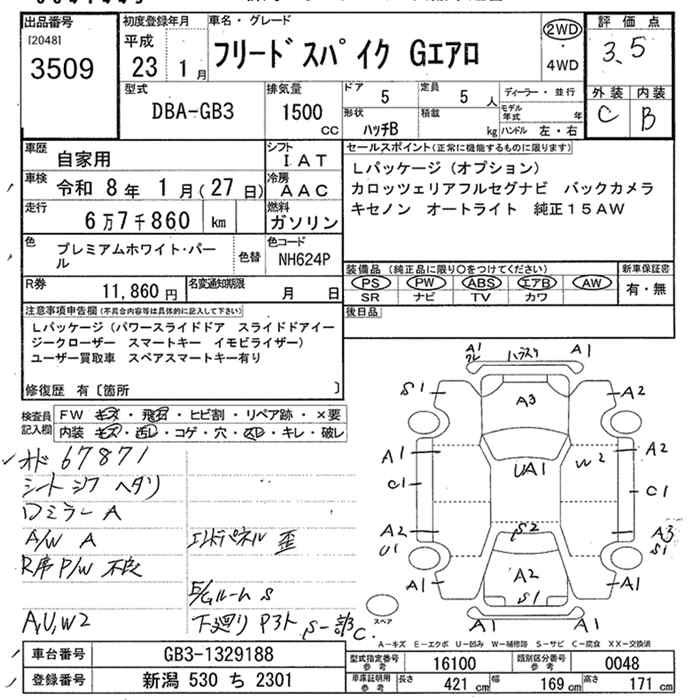 出品番号
[2048]
3509
初度登録年月
平成
23 1月
車名・グレード
フリードスパイク Gエアロ
2WD
・
4WD
評価点
3.5
外装 内装
C B
型式
DBA-GB3
排気量
1500
cc
ドア
5
定員
5 人
形状
ハッチB
積載
kg
ディーラー・並行
モデル年式 年
ハンドル 左・右
車歴
自家用
シフト
IAT
車検
令和 8年 1月(27日)
冷房
AAC
走行
6万7千860 km
燃料
ガソリン
色
プレミアムホワイト・パール
色替
色コード
NH624P
R券
11,860円
名変通知期限
月 日
セールスポイント(正常に機能するものに限ります)
Lパッケージ(オプション)
カロッツェリアフルセグナビ バックカメラ
キセノン オートライト 純正15AW
装備品(純正品に限り〇をつけてください)
PS PW ABS エアB AW
SR ナビ TV カワ
新車保証書
有・無
後日品
注意事項申告欄(不具合内容等は具体的に記入して下さい)
Lパッケージ(パワースライドドア スライドドアイー
ジークローザー スマートキー イモビライザー)
ユーザー買取車 スペアスマートキー有り
修復歴 有〔箇所 〕
検査員記入欄
FW キズ・飛石・ヒビ割・リペア跡・×要
内装 キズ・汚レ・コゲ・穴・スレ・キレ・破レ
オド 67871
シートシワ ヘタリ
ロミラー A
A/W A
エンドパネル 歪
R席 P/W 不良
E/Gルーム S
A,U,W2
下廻り アオト S一部C
A1
クレ
ハラスリ
A1
S1
A3
A2
A1
C1
UA1
W2
A2
C1
A2
U1
S2
A3
S1
A1
A2
S1
A1
A1
A1
スペア
A-キズ E-エクボ U-凹み W-補修跡 S-サビ C-腐食 XX-交換済
車台番号
GB3-1329188
登録番号
新潟 530 ち 2301
型式指定番号
参考
16100
類別区分番号
参考
0048
車庫証明用
参考
長さ 421 cm
幅 169 cm
高さ 171 cm